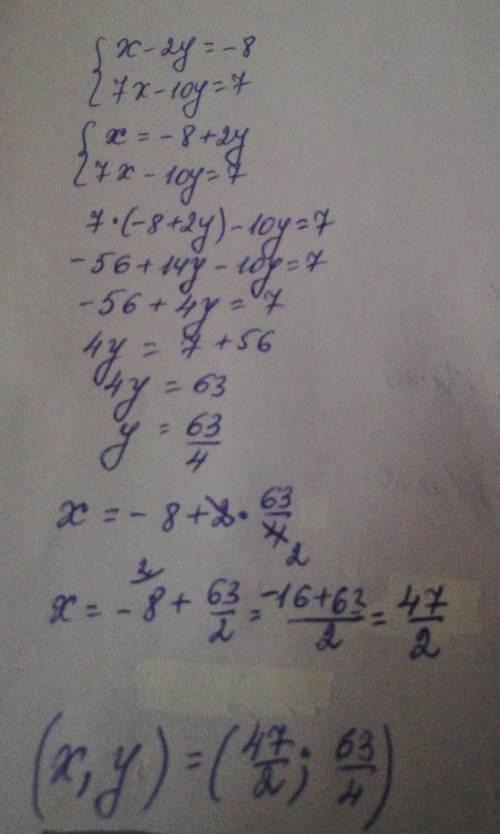 { x - 2y = -8
7x - 10y = 7
{ x = -8 + 2y
7x - 10y = 7
7·(-8+2y) - 10y = 7
-56 + 14y - 10y = 7
-56 + 4y = 7
4y = 7 + 56
4y = 63
y = 63/4
x = -8 + 2 · 63/4 2
x = -8 2 + 63/2 = -16+63/2 = 47/2
(x, y) = (47/2; 63/4)